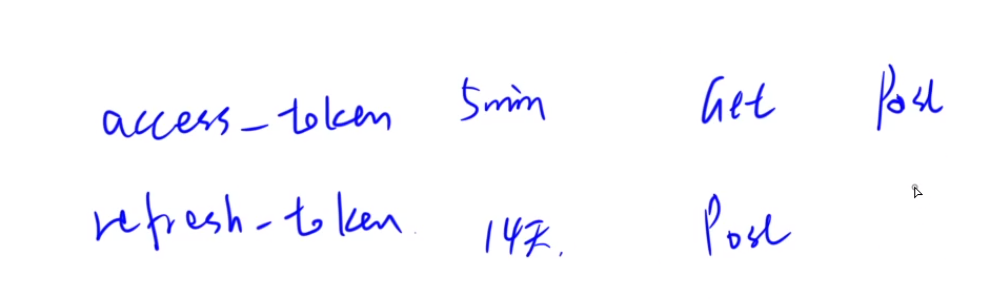 access_token 5min Get Post
refresh-token 14天. Post